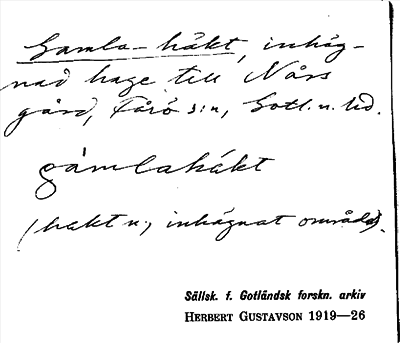 Gamla-häkt, inhäg-
nad hage till Nårs
gård, Fårö s:n, Gotl. n. hd.
gàmlahákt
(hakt n., inhägnat område).
Sällsk. f. Gotländsk forskn. arkiv
HERBERT GUSTAVSON 1919—26